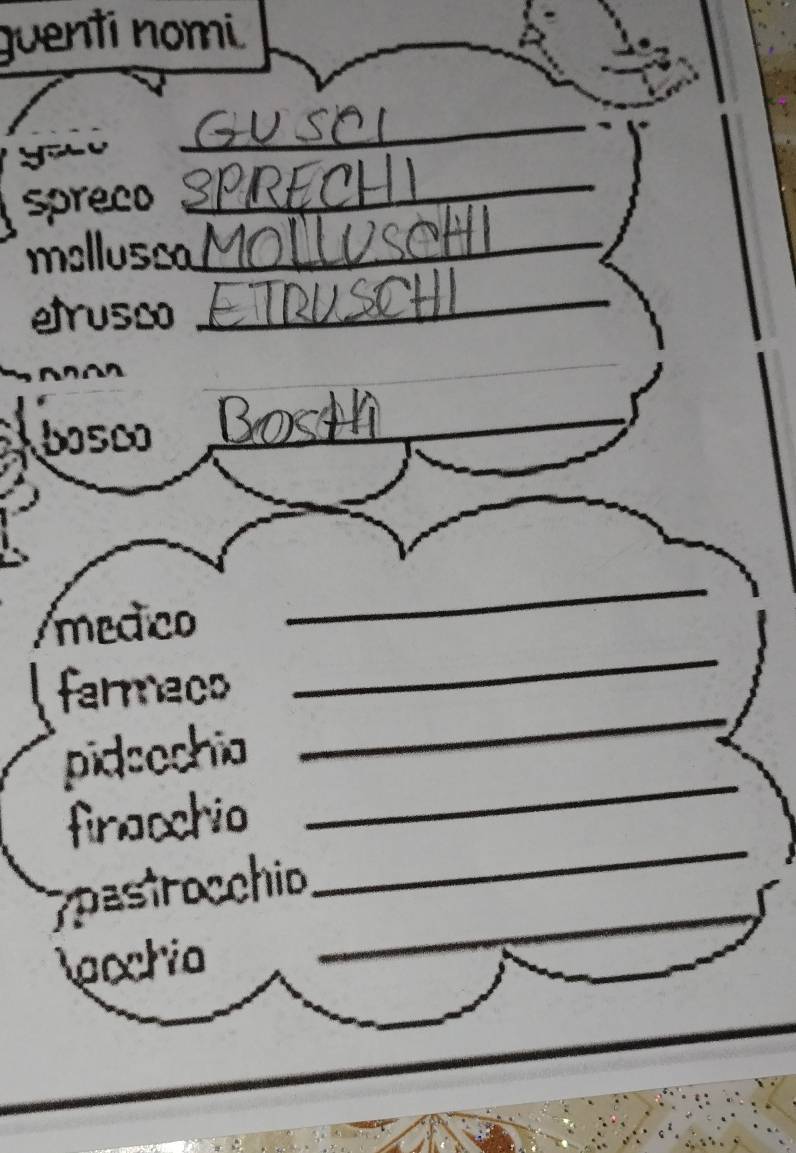 guenti nomi.
GUSCI
spreco SPRECHI
mollusco MOLLUSCHI
etrusco ETRUSCHI
bosco BOSCHI
medico
farmaco
pidocchio
finocchio
pastrocchio
occhio